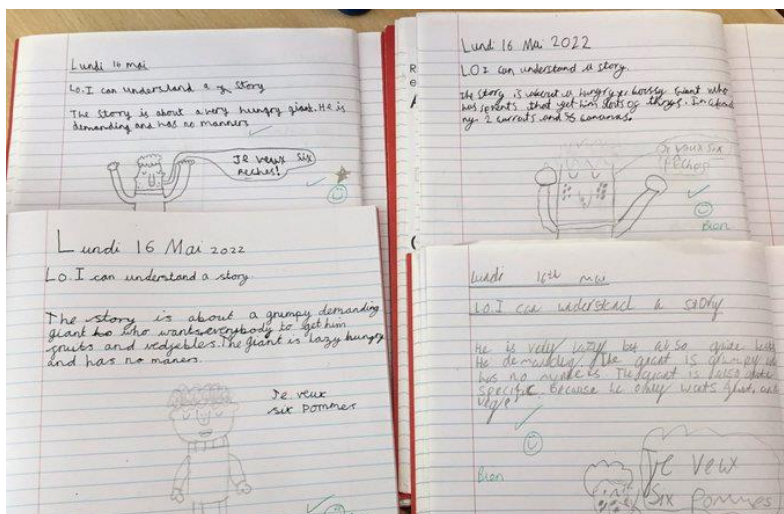 Lundi 16 mai
Lo. I can understand a story
The story is about a very hungry giant. He is
demanding and has no manners
Je veux six
peches!
Lundi 16 Mai 2022
LO I can understand a story.
The story is about a hungry bossy giant who
has servents that get him lots of things. In
my 2 carrots and 8 bananas.
Je veux six
Pêches
Bien
Lundi 16 Mai 2022
Lo. I can understand a story
The story is about a grumpy demanding
giant who wants everybody to get him
fruits and vedjebles. The giant is lazy hungry
and has no maners.
Je veux
six pommer
Lundi 16th mai
LO. I can understand a story
He is very lazy but also quite
He demanding. The giant is grumpy
has no manners. The giant is also
specific because he only wants fruit and
vege
Bien
Je veux
Six pommes